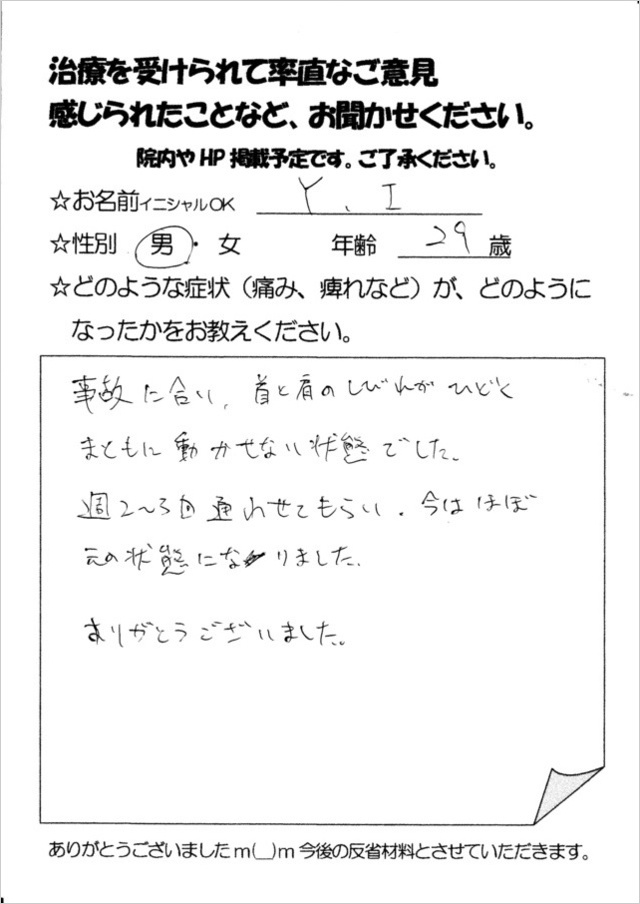 治療を受けられて率直なご意見
感じられたことなど、お聞かせください。
院内やHP掲載予定です。ご了承ください。
☆お名前イニシャルOK Y.I
☆性別 男・女 年齢 29 歳
☆どのような症状（痛み、痺れなど）が、どのように
なったかをお教えください。
事故に合い、首と肩のしびれがひどく
まともに動かせない状態でした。
週2〜3回通わせてもらい、今はほぼ
元の状態になりました。
ありがとうございました。
ありがとうございましたm(__)m今後の反省材料とさせていただきます。